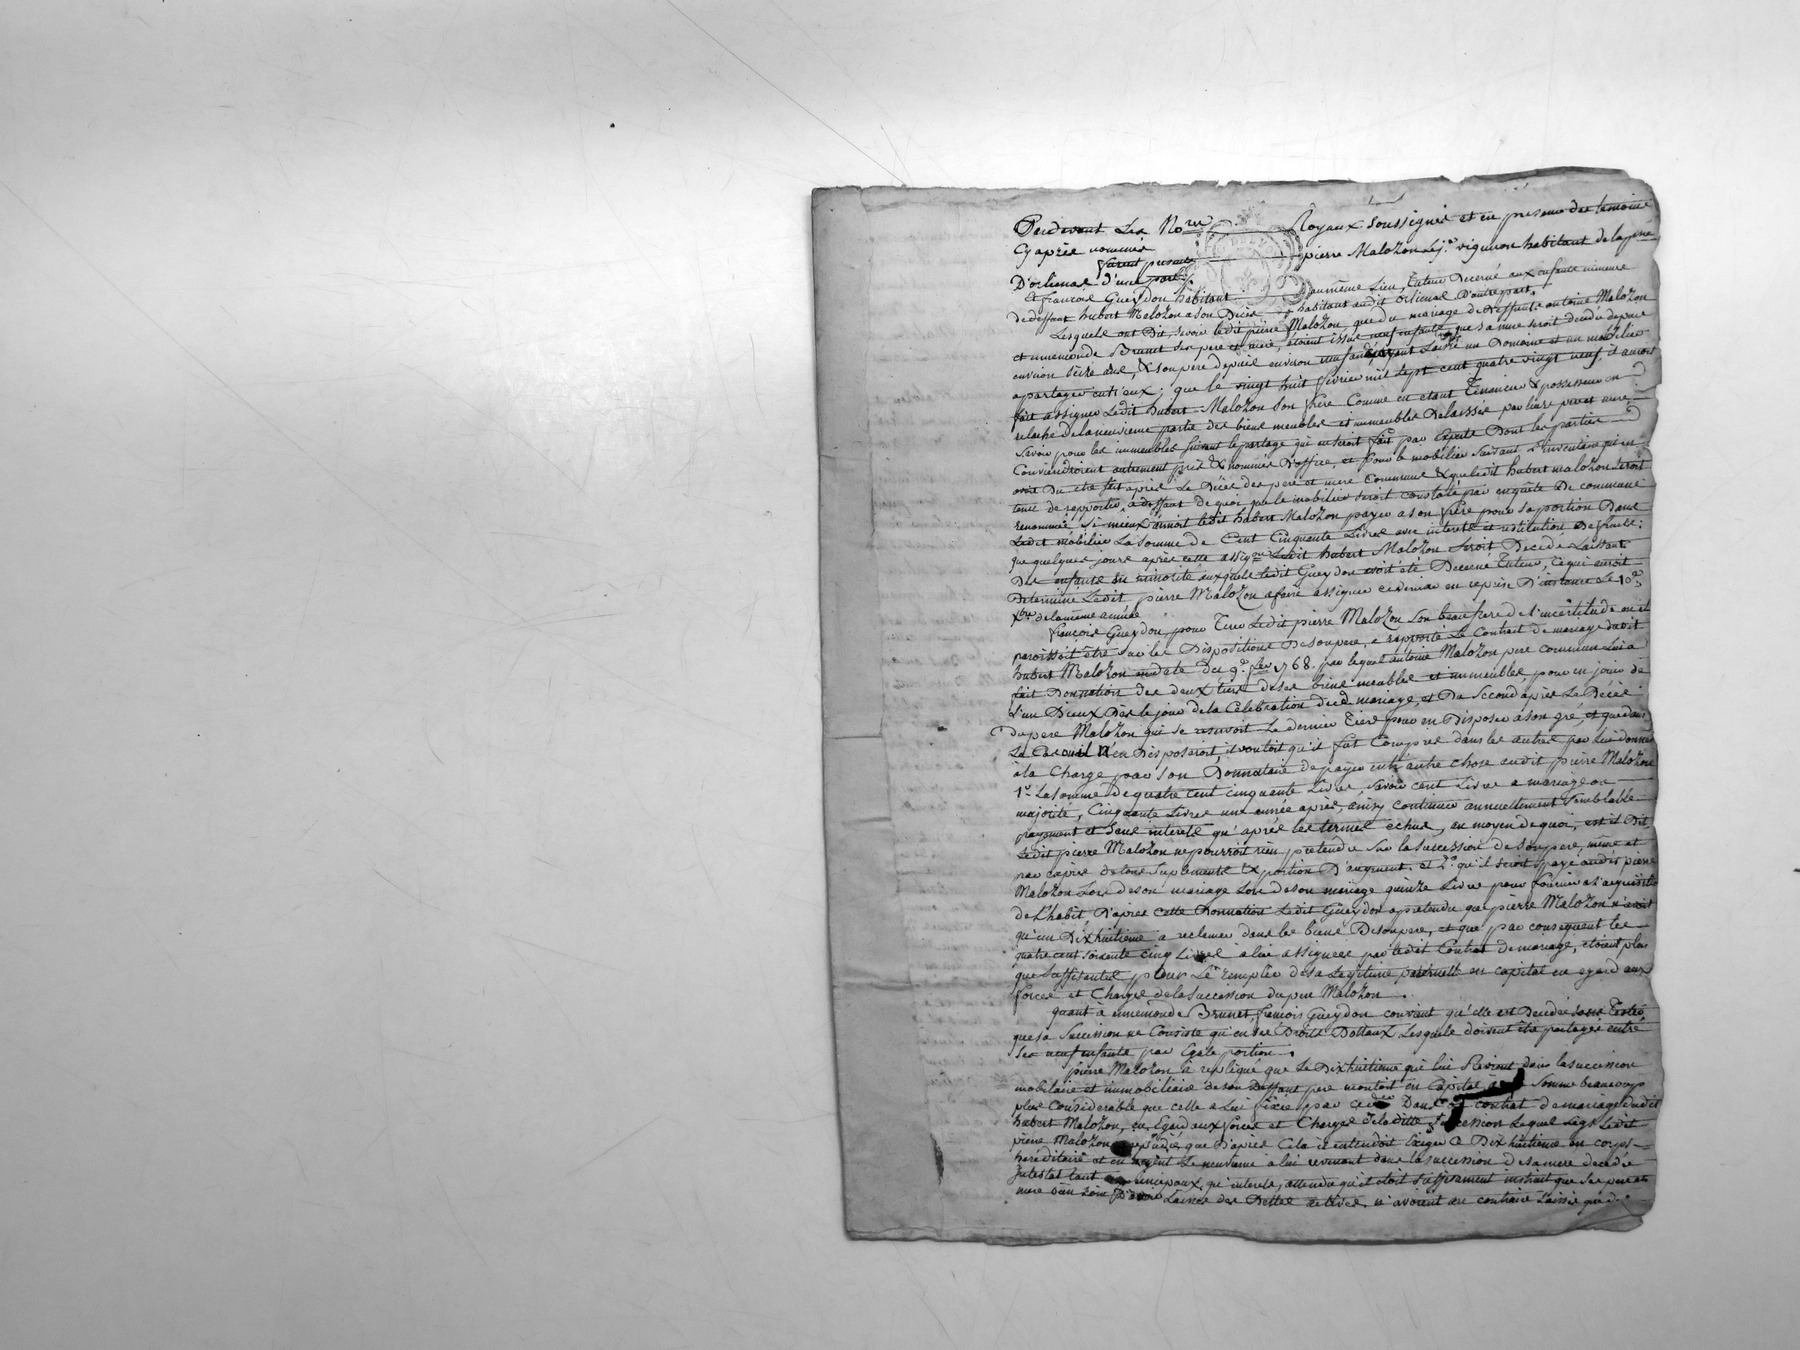 Pardevant Les No.res Royaux soussignés et en presence des temoins
Cyaprès nommés furent presents pierre Malozon Lej.e vigneron habitant de la p.sse
D'orlienas d'une part,
Et francois Gueydon habitant Dumême Lieu, Tuteur Decerné aux enfants mineurs
de deffunt hubert Malozon a son Décès habitant audit Orlienas D'autre part,
Lesquels ont Dit, savoir ledit pierre Malozon, que du mariage de deffunts antoine Malozon
et ennemonde Brunet ses pere et mere, étoient issus neuf enfants, que sa mere seroit decedée depuis
environ treize ans, & son pere depuis environ neuf ans ayant Laissé un Domaine et un mobilier
a partager entr'eux; que le vingt huit fevrier mil sept cent quatre vingt neuf, il auroit
fait assigner Ledit hubert Malozon son frere Comme en etant Tenancier & possesseur en
relache de la neuvieme partie des biens meubles et immeubles Delaissés par leurs pere et mere,
Savoir pour les immeubles suivant le partage qui en seroit fait par Experts Dont les parties
Conviendroient autrement pris & nommés D'office, et pour le mobilier suivant L'inventaire qui en
avoit Du etre fait après Le Décès des pere et mere Communs & que ledit hubert malozon seroit
tenu de rapporter, a deffaut de quoi que le mobilier seroit constaté par enquête De commune
renommée si mieux n'aimoit ledit hubert Malozon payer a son frere pour sa portion Dans
Ledit mobilier La somme de Cent Cinquante Livres avec interets et restitution De fruits;
que quelques jours après cette assig.on Ledit hubert Malozon seroit Decedé Laissant
Des enfants en minorité auxquels ledit Gueydon avoit été Decerné Tuteur, Ce qui auroit
Determiné Ledit pierre Malozon a faire assigner ce dernier en reprise D'instance Le 10.e
X.bre de la même année
François Gueydon, pour Tirer Ledit pierre Malozon son beaufrere de l'incertitude ou il
paroissoit être sur les Dispositions De son pere, a rapporté Le Contrat de mariage dudit
hubert Malozon en date du 9.e 1768. par lequel antoine Malozon pere commun Lui a
fait Donnation des deux tiers de ses biens meubles et immeubles, pour en jouir de
l'un D'ieux Dès le jour de la Celebration dud. mariage, et Du second après Le Décès
du pere Malozon qui se reservoit Le dernier Tiers pour en Disposer a son gré, et que dans
Le Cas ou il N'en Disposeroit, il vouloit qu'il fut Compris dans les autres par lui donnés
à la Charge par son Donnataire de payer entr'autre chose audit pierre Malozon
1.o La somme de quatre Cent cinquante Livres, Savoir cent Livres a mariage ou
majorité, Cinquante Livres une année après, ainsy continuer annuellement semblable
payement et sans interets qu'après les termes echus, au moyen de quoi, est il Dit,
Ledit pierre Malozon ne pourroit rien pretendre sur la succession de son pere, même
par de tous suplements & portion D'augment. et 2.o qu'il seroit payé audit pierre
Malozon Lors de son mariage Lors de son mariage quinze Livres pour fournir a l'acquisition
de L'habit, D'après cette Donnation Ledit Gueydon a pretendu que pierre Malozon n'avoit
qu'un Dixhuitieme a reclamer dans les biens De son pere, et que par consequent les
quatre cent soixante cinq Livres a lui assignées par ledit Contrat de mariage, étoient plus
que suffisantes pour Le remplir de sa Legitime paternelle en capital eu egard aux
forces et Charges de la succession du pere Malozon.
quant à ennemonde Brunet, francois Gueydon convient qu'elle est Decedée sans Tester,
que sa succession ne Consiste qu'en ses Droits Dottaux, Lesquels doivent être partagés entre
ses neuf enfants par Egale portion.
pierre Malozon a repliqué que Le Dixhuitieme qui lui Revient dans la succession
mobiliaire et immobiliaire de son Deffunt pere montoit en Capital, a une Somme beaucoup
plus Considerable que celle a Lui fixée par Dans Le contrat de mariage dudit
hubert Malozon, eu Egard aux forces et Charges de la ditte succession Lequel Legs Ledit
pierre Malozon repudié, que D'après Cela il entendoit Exiger Ce Dixhuitieme en corps
héréditaire et en argent Le neuvieme a lui revenant dans la succession de sa mere decedée
Intestat tant en principaux, qu'interets, attendu qu'il étoit suffisament instruit que ses pere et
mere bien Loin D'avoir Laissés des Dettes actives, n'avoient au contraire Laissé que d